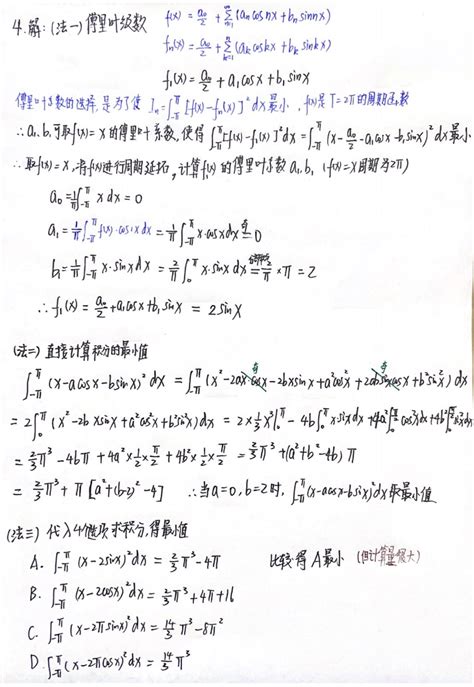 4.解:(法一)傅里叶级数 f(x) = a₀/2 + Σ_{n=1}^{∞} (aₙ cos nx + bₙ sin nx)
fₙ(x) = a₀/2 + Σ_{k=1}^{n} (aₖ cos kx + bₖ sin kx)
f₁(x) = a₀/2 + a₁ cos x + b₁ sin x
傅里叶系数的选择,是为了使 Iₙ = ∫_{-π}^{π} [f(x) - fₙ(x)]² dx 最小, f(x)是 T = 2π 的周期函数
∴ a₁, b₁ 可取 f(x) = x 的傅里叶系数, 使得 ∫_{-π}^{π} [f(x) - f₁(x)]² dx = ∫_{-π}^{π} (x - a₀/2 - a₁ cos x - b₁ sin x)² dx 最小
∴ 取 f(x) = x, 将 f(x) 进行周期延拓, 计算 f₁(x) 的傅里叶系数 a₁, b₁ (f(x) = x 周期为 2π)
a₀ = 1/π ∫_{-π}^{π} x dx = 0
a₁ = 1/π ∫_{-π}^{π} f(x)·cos x dx = 1/π ∫_{-π}^{π} x·cos x dx 奇= 0
b₁ = 1/π ∫_{-π}^{π} x·sin x dx = 2/π ∫_{0}^{π} x·sin x dx = 2/π × π = 2
∴ f₁(x) = a₀/2 + a₁ cos x + b₁ sin x = 2 sin x
(法二) 直接计算积分的最小值
∫_{-π}^{π} (x - a cos x - b sin x)² dx = ∫_{-π}^{π} (x² - 2ax cos x 奇 - 2bx sin x + a² cos² x + 2ab sin x cos x 奇 + b² sin² x) dx
= 2∫_{0}^{π} (x² - 2b x sin x + a² cos² x + b² sin² x) dx = 2 × 1/3 x³ |₀^π - 4b ∫_{0}^{π} x·sin x dx + 4a² ∫_{0}^{π/2} cos² x dx + 4b² ∫_{0}^{π/2} sin² x dx
= 2/3 π³ - 4bπ + 4a² × 1/2 × π/2 + 4b² × 1/2 × π/2 = 2/3 π³ + (a² + b² - 4b) π
= 2/3 π³ + π [a² + (b-2)² - 4] ∴ 当 a = 0, b = 2 时, ∫_{-π}^{π} (x - a cos x - b sin x)² dx 取最小值
(法三) 代入4个选项求积分,得最小值
A. ∫_{-π}^{π} (x - 2 sin x)² dx = 2/3 π³ - 4π 比较得 A 最小 (但计算量很大)
B. ∫_{-π}^{π} (x - 2 cos x)² dx = 2/3 π³ + 4π + 16
C. ∫_{-π}^{π} (x - 2π sin x)² dx = 14/3 π³ - 8π²
D. ∫_{-π}^{π} (x - 2π cos x)² dx = 14/3 π³